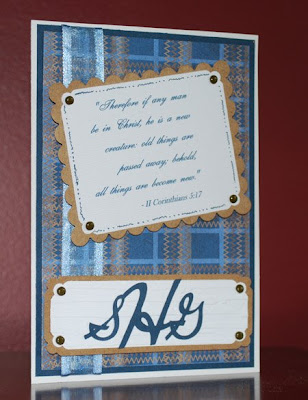 "Therefore if any man
be in Christ, he is a new
creature: old things are
passed away; behold,
all things are become new."
- II Corinthians 5:17
SHG